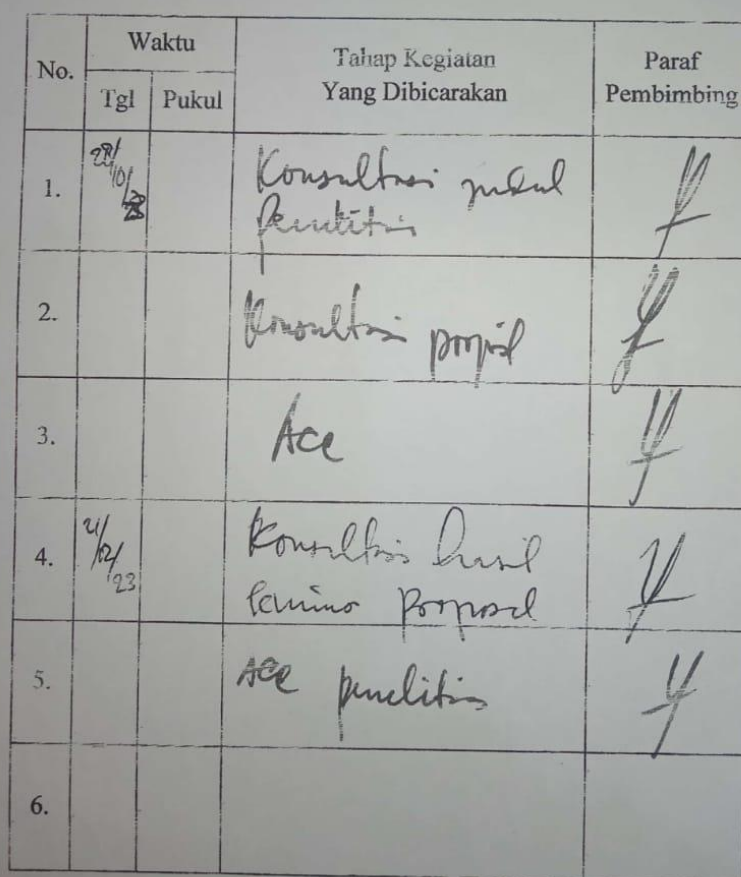 No.
Waktu
Tahap Kegiatan
Yang Dibicarakan
Paraf
Pembimbing
Tgl
Pukul
1.
Konsultasi judul
Penelitian
2.
Konsultasi proposal
3.
Acc
4.
21/02/23
Konsultasi hasil
seminar Proposal
5.
Acc penelitian
6.